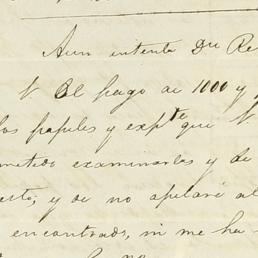 Aun intenta Du Re
V. El pago de 1000 y
los papeles y expte que V.
metido examinarlas y de
esto, y de no apelaré al
encontrado, ni me ha
no